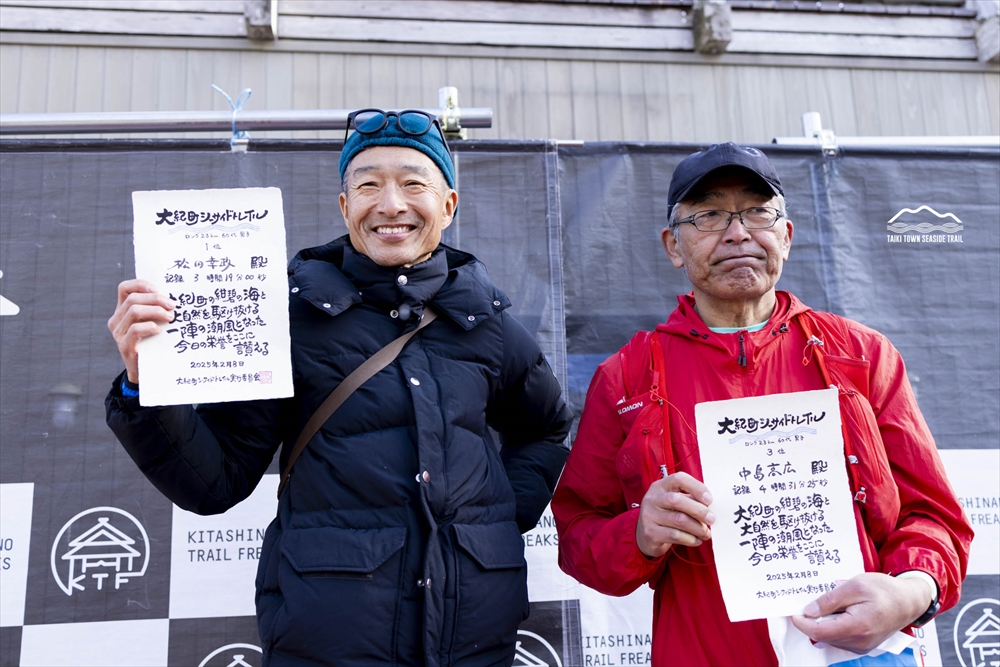 大紀町シーサイドトレイル
ロング23km 60代 男子
1位
松田幸政 殿
記録 3時間19分00秒
大紀町の紺碧の海と
大自然を駆け抜ける
一陣の潮風となった
今日の栄誉をここに
讃える
2025年2月8日
大紀町シーサイドトレイル実行委員会
大紀町シーサイドトレイル
ロング23km 60代 男子
3位
中島高広 殿
記録 4時間31分25秒
大紀町の紺碧の海と
大自然を駆け抜ける
一陣の潮風となった
今日の栄誉をここに
讃える
2025年2月8日
大紀町シーサイドトレイル実行委員会
TAIKI TOWN SEASIDE TRAIL
SALOMON
KTF
KITASHINA
TRAIL FREA
NO
KS
EAKS
KITASHINA
TRAIL FREAK